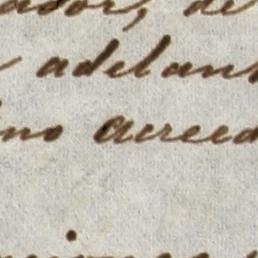 ador, de
adelant
ino acreed